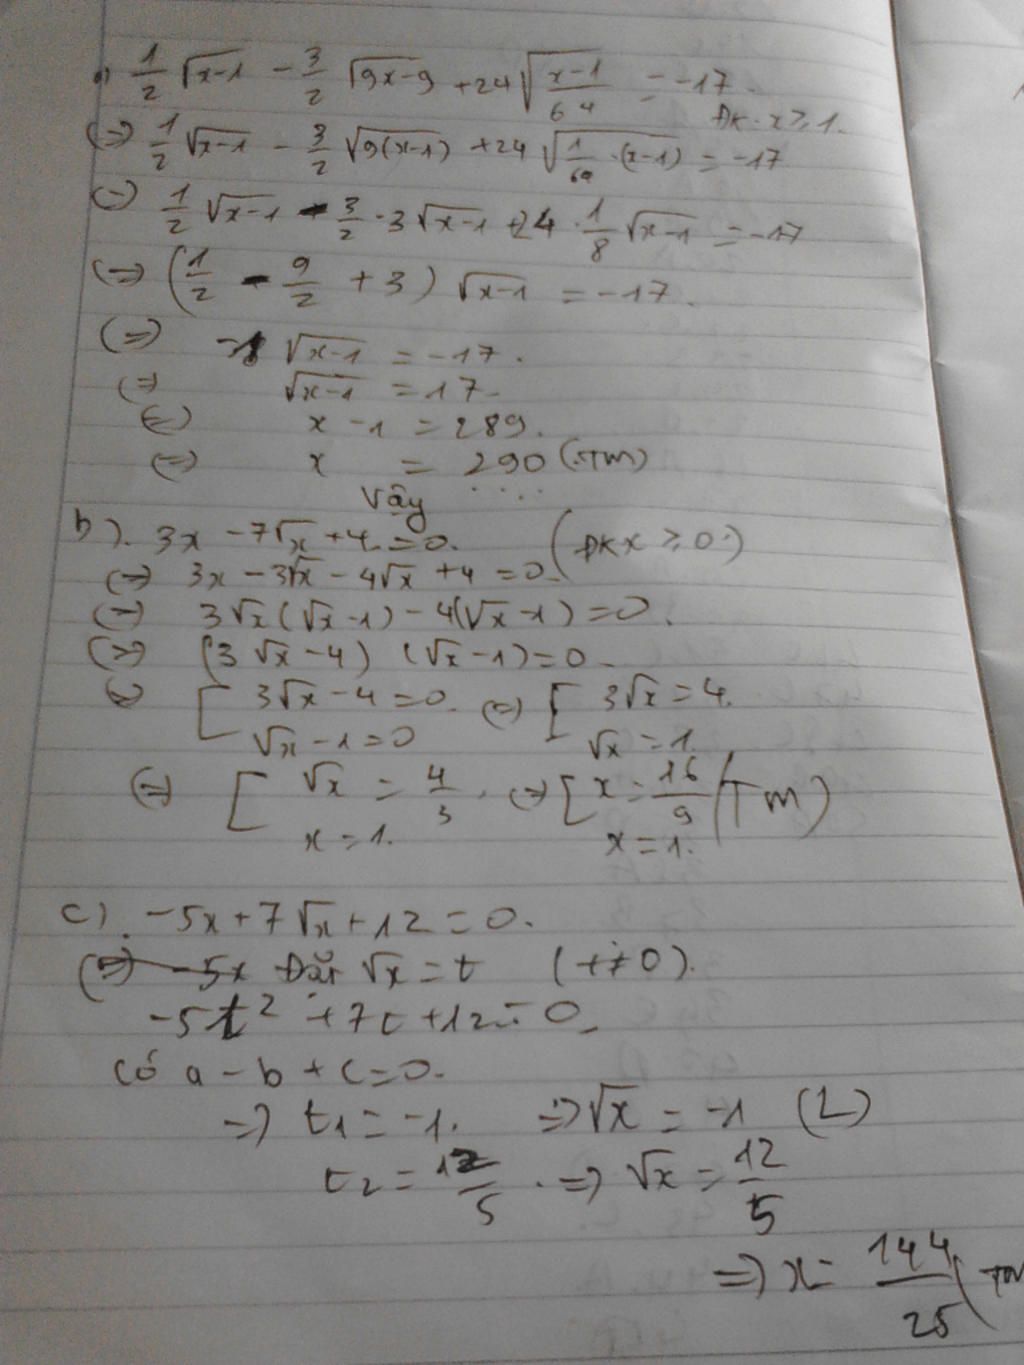 a) 1/2 √(x-1) - 3/2 √(9x-9) + 24 √((x-1)/64) = -17.
ĐK: x ≥ 1.
(=) 1/2 √(x-1) - 3/2 √(9(x-1)) + 24 √(1/64 · (x-1)) = -17
(=) 1/2 √(x-1) - 3/2 · 3 √(x-1) + 24 · 1/8 √(x-1) = -17
(=) (1/2 - 9/2 + 3) √(x-1) = -17.
(=) -1 √(x-1) = -17.
(=) √(x-1) = 17.
(=) x - 1 = 289.
(=) x = 290 (TM)
Vậy ....
b). 3x - 7√x + 4 = 0. (ĐK x ≥ 0.)
(=) 3x - 3√x - 4√x + 4 = 0.
(=) 3√x (√x - 1) - 4(√x - 1) = 0.
(=) (3√x - 4) (√x - 1) = 0.
(=) [ 3√x - 4 = 0. (=) [ 3√x = 4.
√x - 1 = 0 √x = 1.
(=) [ √x = 4/3. (=) [ x = 16/9 (TM)
x = 1. x = 1.
c). -5x + 7√x + 12 = 0.
Đặt √x = t (t ≠ 0).
-5t² + 7t + 12 = 0.
Có a - b + c = 0.
=) t1 = -1. =) √x = -1 (L)
t2 = 12/5. =) √x = 12/5
=) x = 144/25 (TM